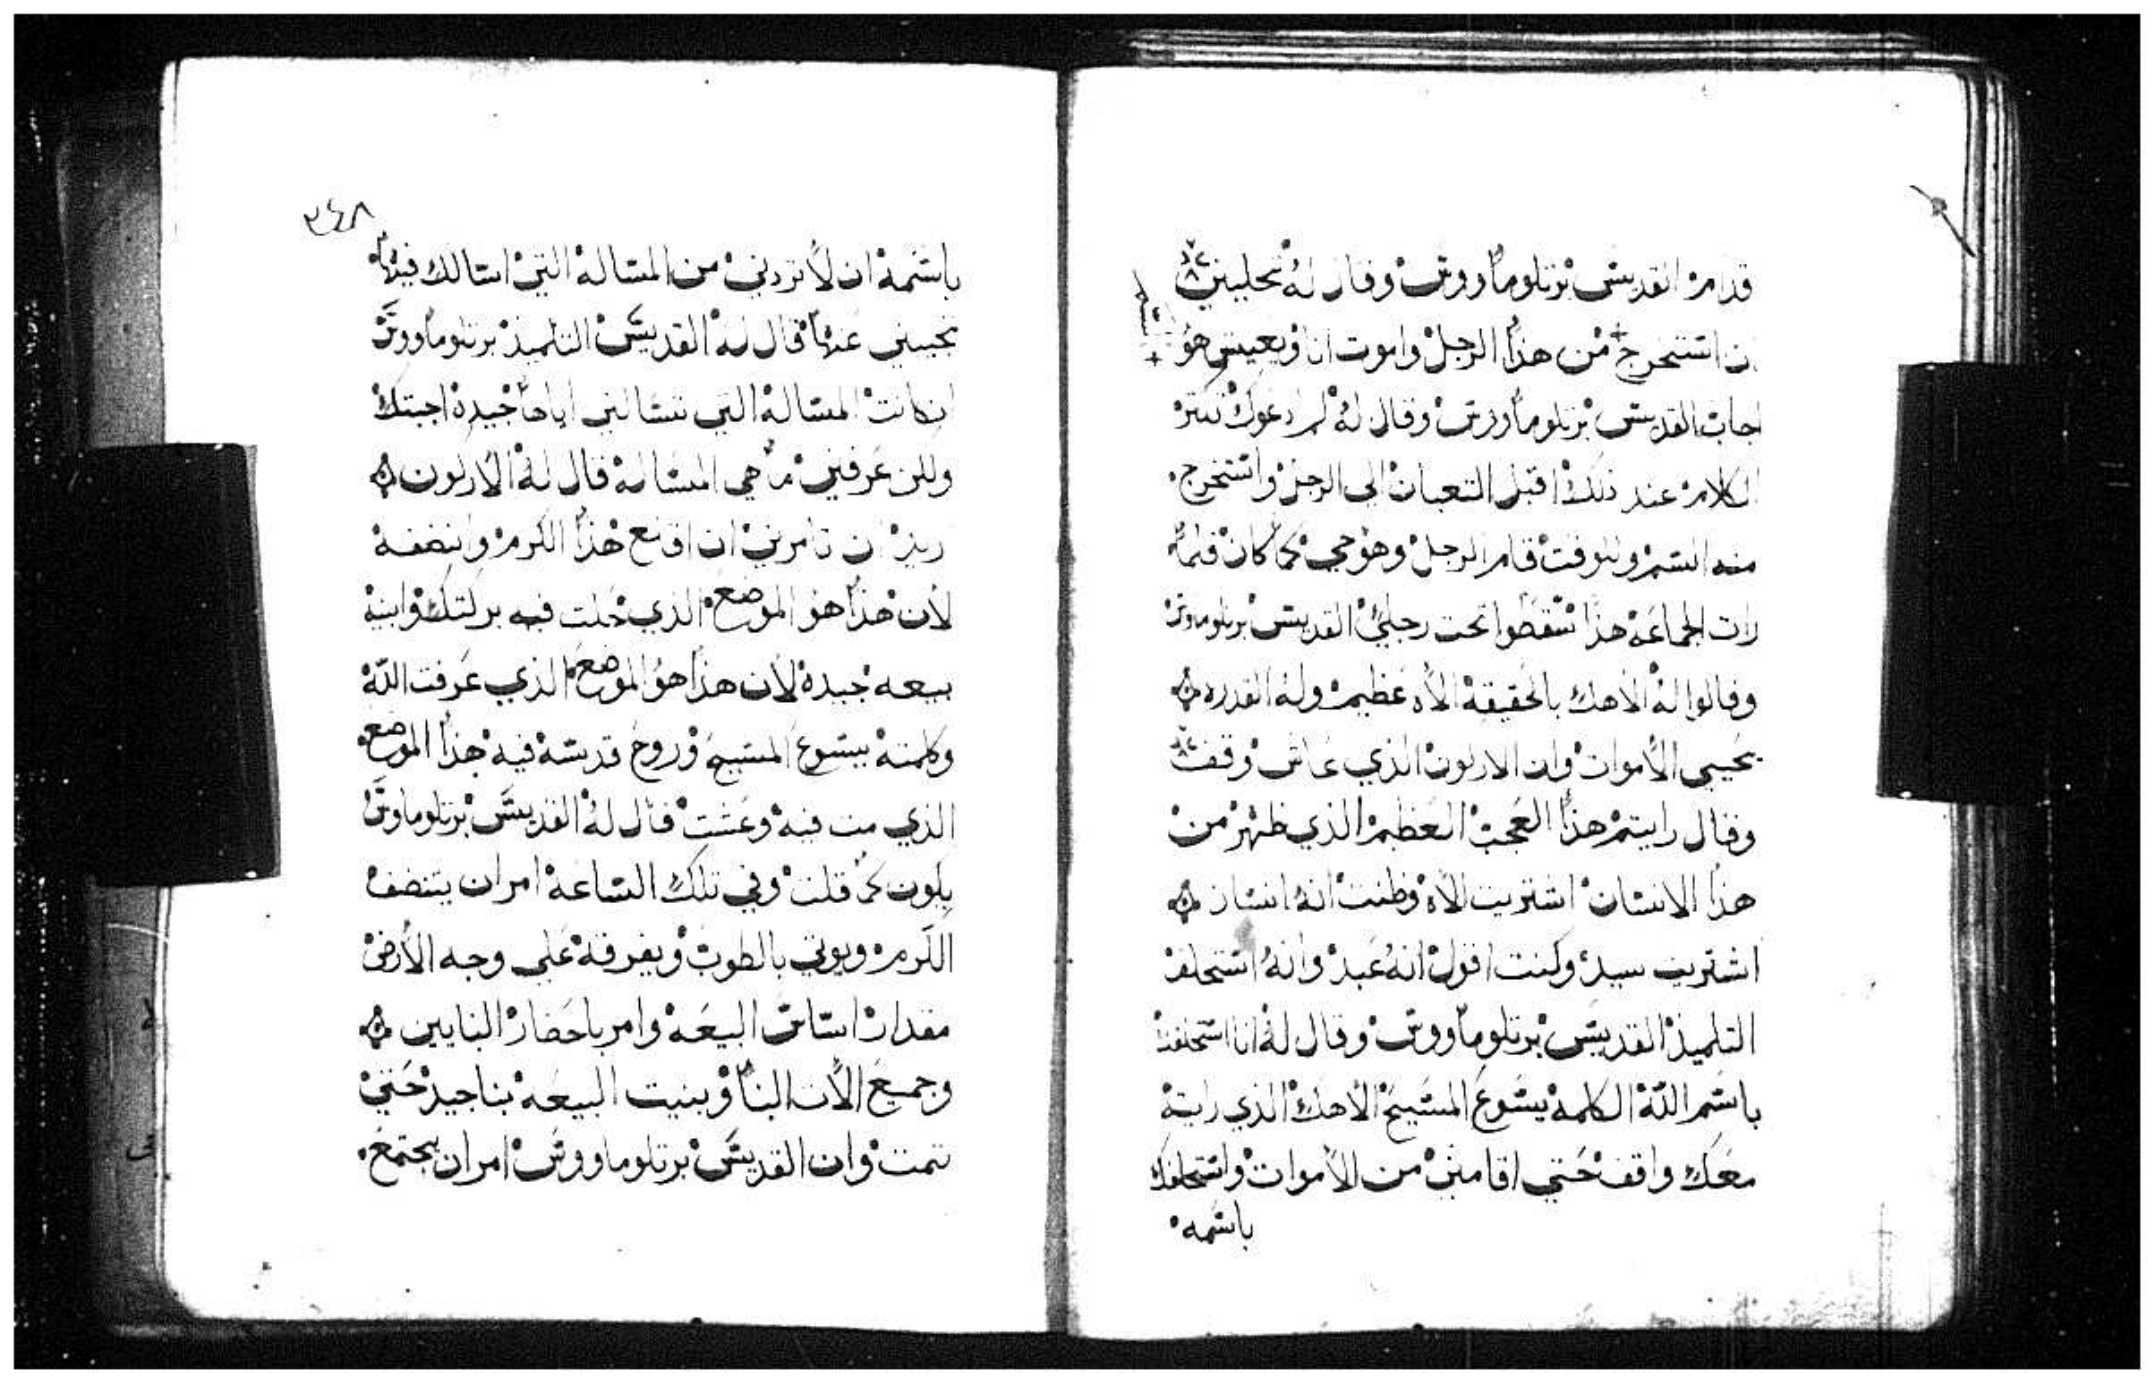 قدام القديس برتلوماووس وقال له تخليني
ان استخرج من هذا الرجل واموت انا ويعيش هو
السم
اجاب القديس برتلوماووس وقال له لم ادعوك تكتر
الكلام عند ذلك اقبل التعبان الي الرجل واستخرج
منه السم وللوقت قام الرجل وهو حي كما كان فلما
رات الجماعة هذا سقطوا تحت رجلي القديس برتلوماوس
وقالوا له الاهك بالحقيقة الاه عظيم وله القدره
يحيي الاموات وان الارلون الذي عاش وقف
وقال رايتم هذا العجب العظيم الذي ظهر من
هذا الانسان اشتريت الاه وظننت انه انسان
اشتريت سيد وكنت اقول انه عبد وانه استحلف
التلميذ القديس برتلوماووس وقال له انا استحلفك
باسم الله الكلمة يسوع المسيح الاهك الذي رايته
معك واقف حتي اقامني من الاموات واستحلفك
باسمه
٢٤٨
باسمه ان لا تردني من المساله التي اسالك فيها
تجيبني عنها قال له القديس التلميذ برتلوماووس
ان كانت المساله التي تسالني اياها جيده اجبتك
ولكن عرفني ما هي المساله قال له الارلون
اريد ان تامرني ان اقلع هذا الكرم وانضفه
لان هذا هو الموضع الذي حلت فيه بركتك وابنيه
بيعه جيدة لان هذا هو الموضع الذي عرفت الله
وكلمته يسوع المسيح وروح قدسه فيه هذا الموضع
الذي مت فيه وعشت قال له القديس برتلوماوس
يكون كما قلت وفي تلك الساعة امر ان يتنضف
الكرم ويوتي بالطوب ويفرقه علي وجه الارض
مقدار اساس البيعه وامر باحضار البنايين
وجميع الات البنا وبنيت البيعه بنا جيد حتي
تمت وان القديس برتلوماووس امر ان يجتمع